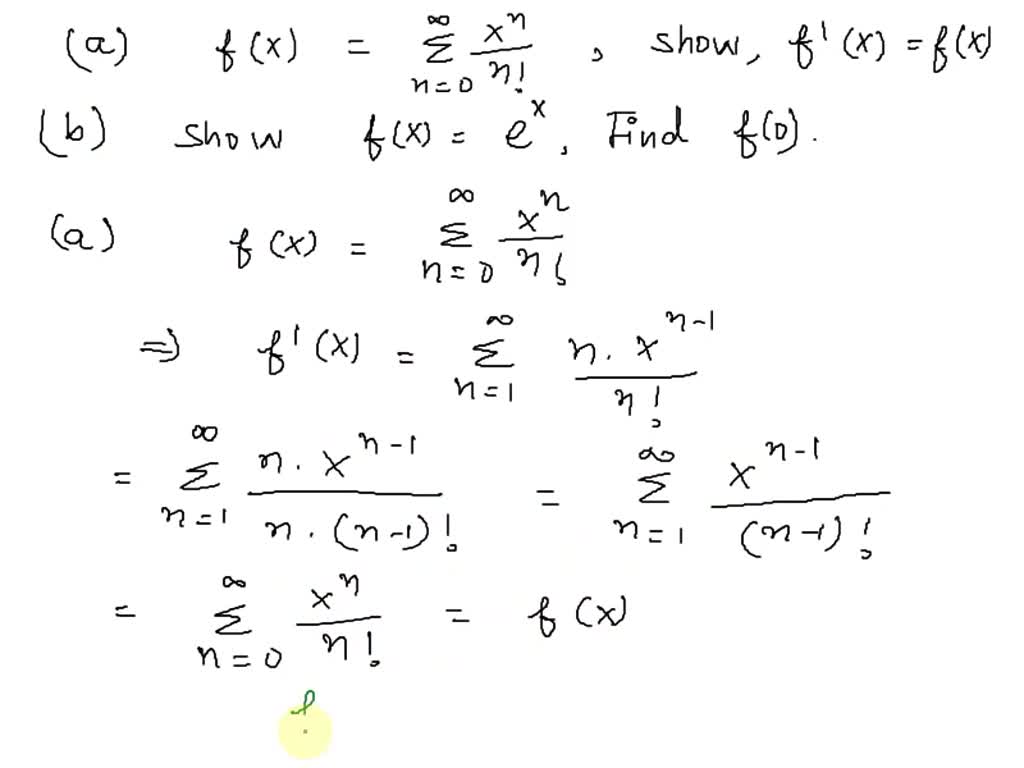 (a) f(x) = ∑_{n=0}^{∞} x^n / n! , show, f'(x) = f(x)
(b) show f(x) = e^x, Find f(0).
(a) f(x) = ∑_{n=0}^{∞} x^n / n!
⇒ f'(x) = ∑_{n=1}^{∞} n. x^{n-1} / n!
= ∑_{n=1}^{∞} n. x^{n-1} / n. (n-1)! = ∑_{n=1}^{∞} x^{n-1} / (n-1)!
= ∑_{n=0}^{∞} x^n / n! = f(x)